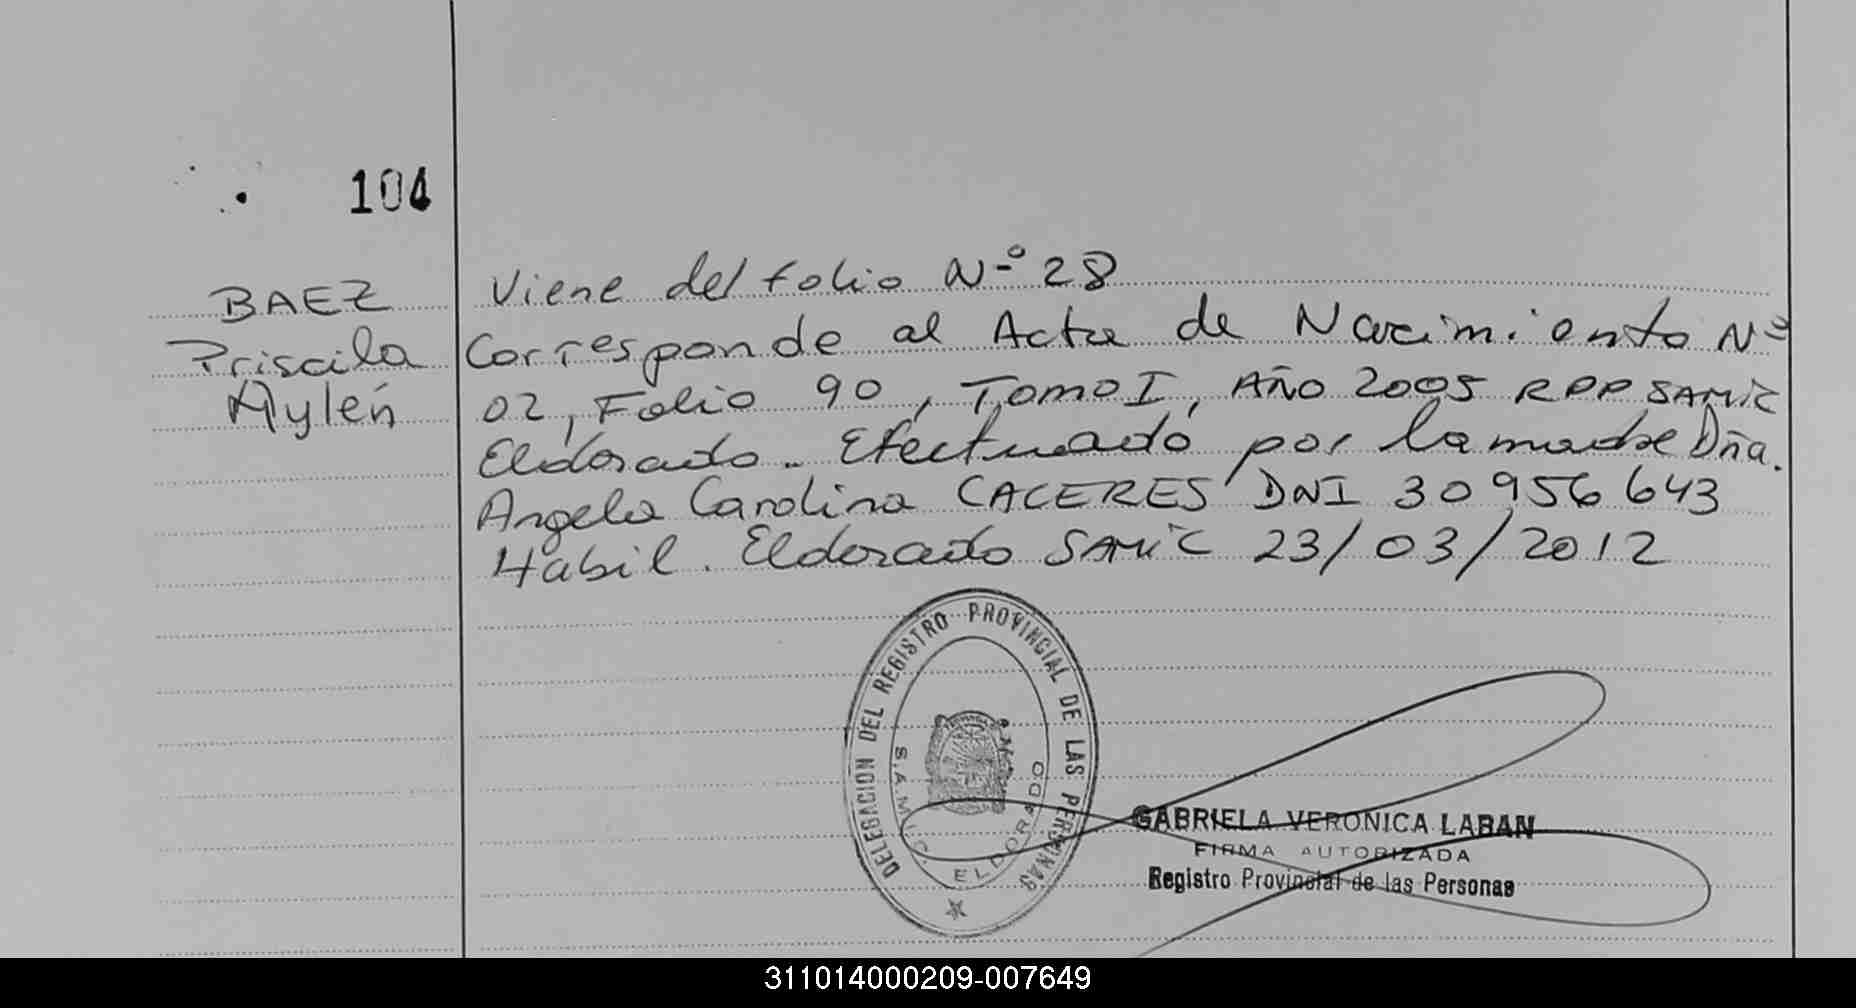 104
BAEZ
Priscila
Aylén
Viene del folio Nº 28
Corresponde al Acta de Nacimiento Nº
02, Folio 90, Tomo I, AÑO 2005 RPP SAMIC
Eldorado. Efectuado por la madre Dña.
Angela Carolina CACERES DNI 30956643
Habil. Eldorado SAMIC 23/03/2012
DELEGACION DEL REGISTRO PROVINCIAL DE LAS PERSONAS
S.A.M.I.C. ELDORADO
GABRIELA VERONICA LABAN
FIRMA AUTORIZADA
Registro Provincial de las Personas
311014000209-007649